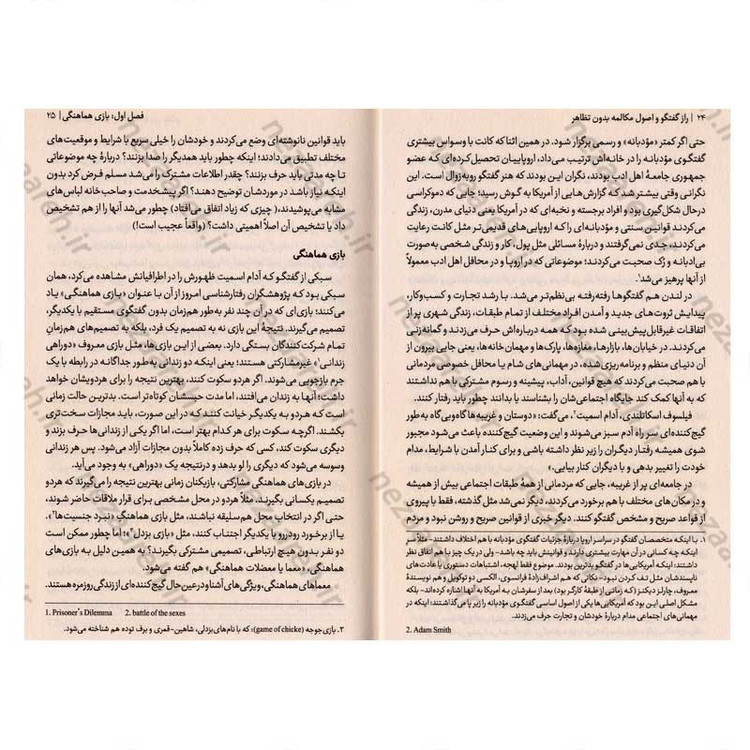 ۲۴ | راز گفتگو و اصول مکالمه بدون تظاهر
حتی اگر کمتر «مؤدبانه» و رسمی برگزار شود. در همین اثنا که کانت با وسواس بیشتری
گفتگوی مؤدبانه را در خانه‌اش ترتیب می‌داد، اروپاییان تحصیل‌کرده‌ای که عضو
جمهوری جامعهٔ اهل ادب بودند، نگران این بودند که هنر گفتگو روبه‌زوال است. این
نگرانی وقتی بیشتر شد که گزارش‌هایی از آمریکا به گوش رسید؛ جایی که دموکراسی
درحال شکل‌گیری بود و افراد برجسته و نخبه‌ای که در آمریکا یعنی دنیای مدرن، زندگی
می‌کردند قوانین سنتی و مؤدبانه‌ای را که اروپایی‌های قدیمی‌تر مثل کانت رعایت
می‌کردند، جدی نمی‌گرفتند و دربارهٔ مسائلی مثل پول، کار و زندگی شخصی به‌صورت
بی‌ادبانه و رُک صحبت می‌کردند؛ موضوعاتی که در اروپا و در محافل اهل ادب معمولاً
از آنها پرهیز می‌شد¹.
در لندن هم گفتگوها رفته‌رفته بی‌نظم‌تر می‌شد. با رشد تجارت و کسب‌وکار،
پیدایش ثروت‌های جدید و آمدن افراد مختلف از تمام طبقات، زندگی شهری پر از
اتفاقات غیرقابل‌پیش‌بینی شده بود که همه درباره‌اش حرف می‌زدند و گمانه‌زنی
می‌کردند. در خیابان‌ها، بازارها، مغازه‌ها، پارک‌ها و مهمان خانه‌ها، یعنی جایی بیرون از
آن دنیای منظم و برنامه ریزی شده، در مهمانی‌های شام یا محافل خصوصی مردمانی
با هم صحبت می‌کردند که هیچ قوانین، آداب، پیشینه و رسوم مشترکی با هم نداشتند
که به آنها کمک کند جایگاه اجتماعی‌شان را بشناسند یا بدانند چطور باید رفتار کنند.
فیلسوف اسکاتلندی، آدام اسمیت²، می‌گفت: «دوستان و غریبه‌ها گاه‌وبی‌گاه به‌طور
گیج‌کننده‌ای سر راه آدم سبز می‌شوند و این وضعیت گیج‌کننده باعث می‌شود مجبور
شوی همیشه رفتار دیگران را زیر نظر داشته باشی و برای کنار آمدن با شرایط، مدام
خودت را تغییر بدهی و با دیگران کنار بیایی.»
در جامعه‌ای پر از غریبه‌ها، جایی که مردمانی از همهٔ طبقات اجتماعی بیش از همیشه
و در مکان های مختلف با هم برخورد می‌کردند، دیگر نمی‌شد مثل گذشته، فقط با پیروی
از قواعد و مشخص گفتگو کنند. دیگر خبری از قوانین صریح و روشن نبود و مردم
۱. با اینکه متخصصان گفتگو در سراسر اروپا دربارهٔ جزئیات گفتگوی مؤدبانه با هم اختلاف داشتند- مثلاً سر
اینکه چه کسانی در آن مهارت بیشتری دارند و قوانینش باید چه باشد- ولی در یک چیز با هم اتفاق نظر
داشتند: اینکه آمریکایی‌ها در گفتگو بدترین بودند. موضوع فقط لهجه، اشتباهات دستوری یا عادت‌های
ناپسندشان مثل تف کردن نبود- نکاتی که هم اشراف‌زادهٔ فرانسوی، الکسی دو توکویل و هم نویسندهٔ
معروف، چارلز دیکنز (که زمانی از طبقهٔ کارگر بود) بعد از سفرشان به آمریکا به آنها اشاره کرده‌اند- بلکه
مشکل اصلی این بود که آمریکایی‌ها یکی از اصول اساسی گفتگوی مؤدبانه را زیر پا می‌گذاشتند؛ اینکه در
مهمانی‌های اجتماعی مدام دربارهٔ خودشان و تجارت حرف می‌زدند.
2. Adam Smith
فصل اول: بازی هماهنگی | ۲۵
باید قوانین نانوشته‌ای وضع می‌کردند و خودشان را خیلی سریع با شرایط و موقعیت‌های
مختلف تطبیق می‌دادند؛ اینکه چطور باید همدیگر را صدا بزنند؟ دربارهٔ چه موضوعاتی
تا چه مدتی باید حرف بزنند؟ چقدر اطلاعات مشترک را می‌شد مسلم فرض کرد بدون
اینکه نیاز باشد در موردشان توضیح دهند؟ اگر پیشخدمت و صاحب‌خانه لباس‌های
مشابه می‌پوشیدند، (چیزی که زیاد اتفاق می‌افتاد) چطور می‌شد آنها را از هم تشخیص
داد یا تشخیص آن اصلاً اهمیتی داشت؟ (واقعاً عجیب است!)
بازی هماهنگی
سبکی از گفتگو که آدام اسمیت ظهورش را در اطرافیانش مشاهده می‌کرد، همان
سبکی بود که پژوهشگران رفتارشناسی امروز از آن با عنوان «بازی هماهنگی» یاد
می‌کنند؛ بازی‌ای که در آن چند نفر به‌طور هم‌زمان بدون گفتگوی مستقیم با یکدیگر،
تصمیم می‌گیرند. نتیجهٔ این بازی نه به تصمیم یک فرد، بلکه به تصمیم‌های هم‌زمانِ
تمام شرکت کنندگان بستگی دارد. بعضی از این بازی‌ها، مثل بازی معروف «دوراهی
زندانی¹» غیرمشارکتی هستند؛ یعنی اینکه دو زندانی به‌طور جداگانه در رابطه با یک
جرم بازجویی می‌شوند. اگر هردو سکوت کنند، بهترین نتیجه را برای هردویشان خواهد
داشت؛ آنها به زندان می‌افتند، اما مدت حبسشان کوتاه‌تر است. بدترین حالت زمانی
است که هردو به یکدیگر خیانت کنند که در این صورت، باید مجازات سخت‌تری
بکشند. اگرچه سکوت برای هر کدام بهتر است، اما اگر یکی از زندانی‌ها حرف بزند و
دیگری سکوت کند، کسی که حرف زده کاملاً بدون مجازات آزاد می‌شود. پس هر زندانی
وسوسه می‌شود که دیگری را لو بدهد و درنتیجه یک «دوراهی» به وجود می‌آید.
در بازی‌های هماهنگی مشارکتی، بازیکنان زمانی بهترین نتیجه را می‌گیرند که هردو
تصمیم یکسانی بگیرند. مثلاً هردو در محل مشخصی برای قرار ملاقات حاضر شوند،
حتی اگر در انتخاب محل هم‌سلیقه نباشند، مثل بازی «نبرد جنسیت‌ها²»،
یا از برخورد رودررو با یکدیگر اجتناب کنند، مثل «بازی بزدل³»؛ اما چطور ممکن است
دو نفر بدون هیچ ارتباطی، تصمیمی مشترکی بگیرند؟ به همین دلیل به بازی‌های
هماهنگی، «معما یا معضلات هماهنگی» هم گفته می‌شود.
معماهای هماهنگی، ویژگی‌های آشنا و درعین‌حال گیج‌کننده‌ای از زندگی روزمره هستند.
1. Prisoner's Dilemma 2. battle of the sexes
۳. بازی جوجه (game of chicke): که با نام‌های بزدلی، شاهین-قمری و برف توده هم شناخته می‌شود.